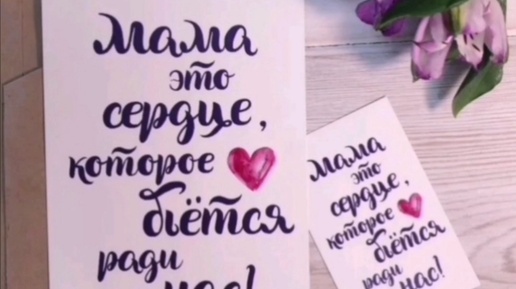 Мама
это
сердце,
которое
бьётся
ради
нас!
Мама
это
сердце,
которое
бьётся
ради
нас!